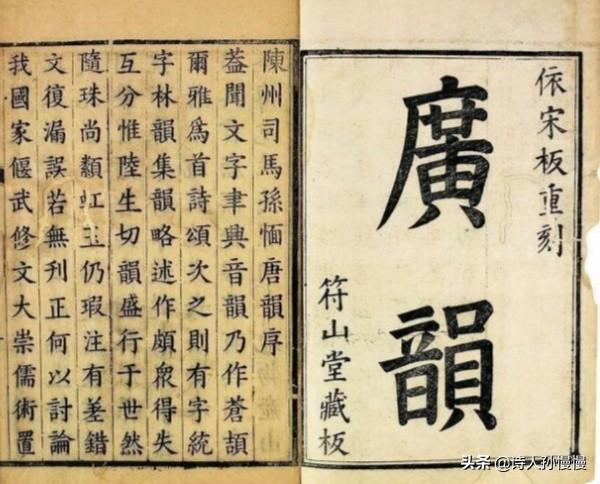 依宋板重刻
廣韻
符山堂藏板
陳州司馬孫愐唐韻序
蓋聞文字聿興音韻乃作蒼頡
爾雅爲首詩頌次之則有字統
字林韻集韻略述作頗衆得失
互分惟陸生切韻盛行于世然
隨珠尚纇虹玉仍瑕注有差錯
文復漏誤若無刋正何以討論
我國家偃武修文大崇儒術置
头条 @诗人孙慢慢